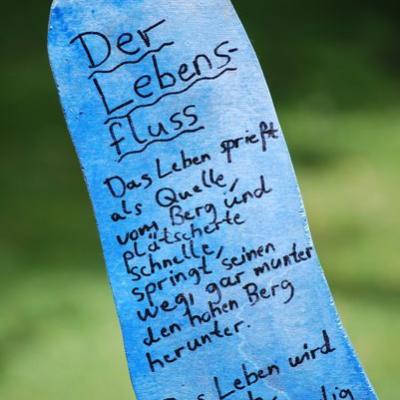 Der
Lebens-
fluss
Das Leben sprießt
als Quelle,
vom Berg und
plätscherte
schnelle,
springt seinen
weg, gar munter
den hohen Berg
herunter.
Das Leben wird